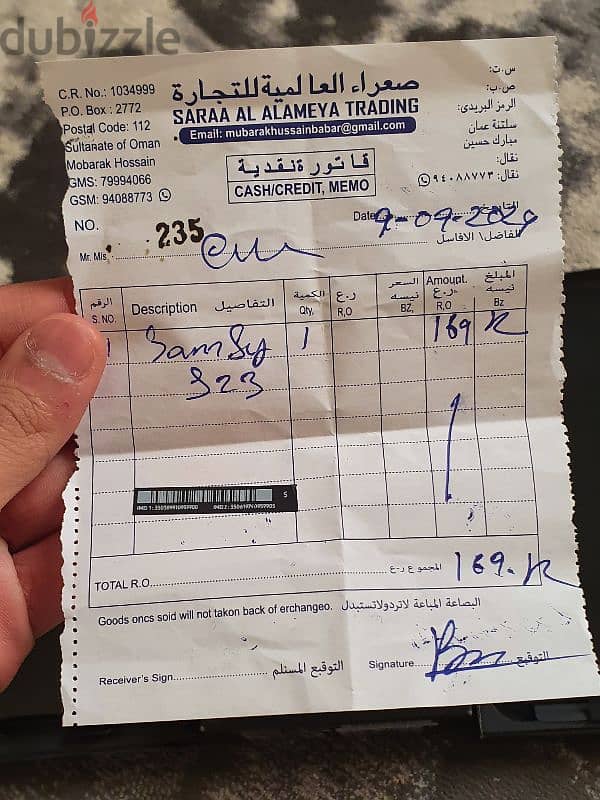 dubizzle
C.R. No.: 1034999
P.O. Box : 2772
Postal Code: 112
Sultanate of Oman
Mobarak Hossain
GMS: 79994066
GSM: 94088773
صعراء العالمية للتجارة
SARAA AL ALAMEYA TRADING
Email: mubarakhussainbabar@gmail.com
س.ت:
ص.ب:
الرمز البريدي:
سلتنة عمان
مبارك حسين
نقال:
نقال: ٩٤٠٨٨٧٧٣
فاتورة نقدية
CASH/CREDIT, MEMO
NO. 235
Date 9-09-202 التاريخ
Mr. Mis الفاضل\ الافاسل
الرقم S. NO. Description التفاصيل الكمية Qty, ر.ع R,O السعر نيسه BZ, Amount. ر.ع R,O المبلغ نيسه Bz
1 Samsg 1 169 R
S23
S
Total R.O. المجموع ر-ع 169.R
Goods oncs soid will not takon back of erchangeo. البصاعة المباعة لاتردولاتستبدل
Receiver's Sign التوقيع المستلم Signature التوقيع